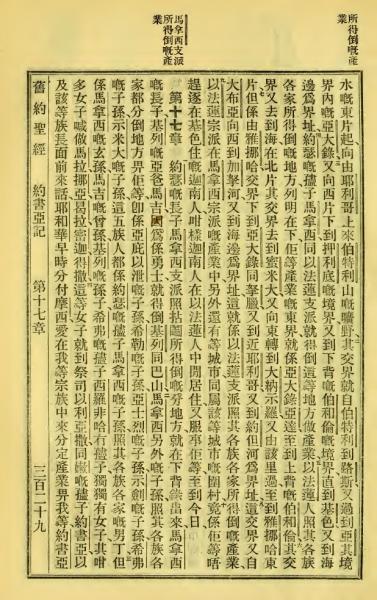 所得倒嘅產業
馬拿西支派所得倒嘅產業
水嘅東片起向由耶利哥上來伯特利山嘅曠野其交界就自伯特利到路斯又過到亞其境
界內嘅亞大錄又向西片下到押利底嘅境界又到下背嘅伯和倫嘅境界直到基色又到海
邊爲界址約瑟嘅孻子馬拿西同以法蓮就得倒這等地方做產業以法蓮人照其各族
各家所得倒嘅地方列明在下佢等產業嘅東界就係亞大錄亞達至到上背嘅伯和倫其交
界又去到海在北片其交界去到蜜米大又向東轉到大納示羅又由該里過至到雅挪哈東
片但係由雅挪哈交界下到亞大錄同拏臘又到近耶利哥又到約但河爲界址這交界又自
大布亞向西到加拏河又到海邊爲界址這就係以法蓮支派照其各族各家所得倒嘅產業
以法蓮宗派在馬拿西宗派嘅產業中另外還有等城市同屬該等城市嘅圍村竟係佢等唔
趕逐在基色住嘅迦南人咁樣迦南人在以法蓮人中間居住又服事佢等至到今日
第十七章 約瑟嘅長子馬拿西支派照拈鬮所得倒嘅分地方就在下背錄出來馬拿西
嘅長子基列嘅亞爸馬吉因爲係勇士就得倒基列同巴山馬拿西另外嘅子孫照其各族各
家都分倒地方畀佢等卽係亞庇以謝嘅子孫希勒嘅子孫亞士烈嘅子孫示劍嘅子孫希弗
嘅子孫示米大嘅子孫這五族人都係約瑟嘅孻子馬拿西嘅子孫照其各族各家嘅男丁但
係馬拿西嘅玄孫馬吉嘅曾孫基列嘅孫子希弗嘅孻子西羅非哈冇孻子獨獨有女子其咁
多女子喊做馬拉挪亞曷拉密迦得撒這等女子就到祭司以利亞撒同嫩嘅孻子約書亞以
及該等族長面前來話耶和華早時分付摩西愛在我等宗族中來分定產業畀我等約書亞
舊約聖經 約書亞記 第十七章 三百二十九